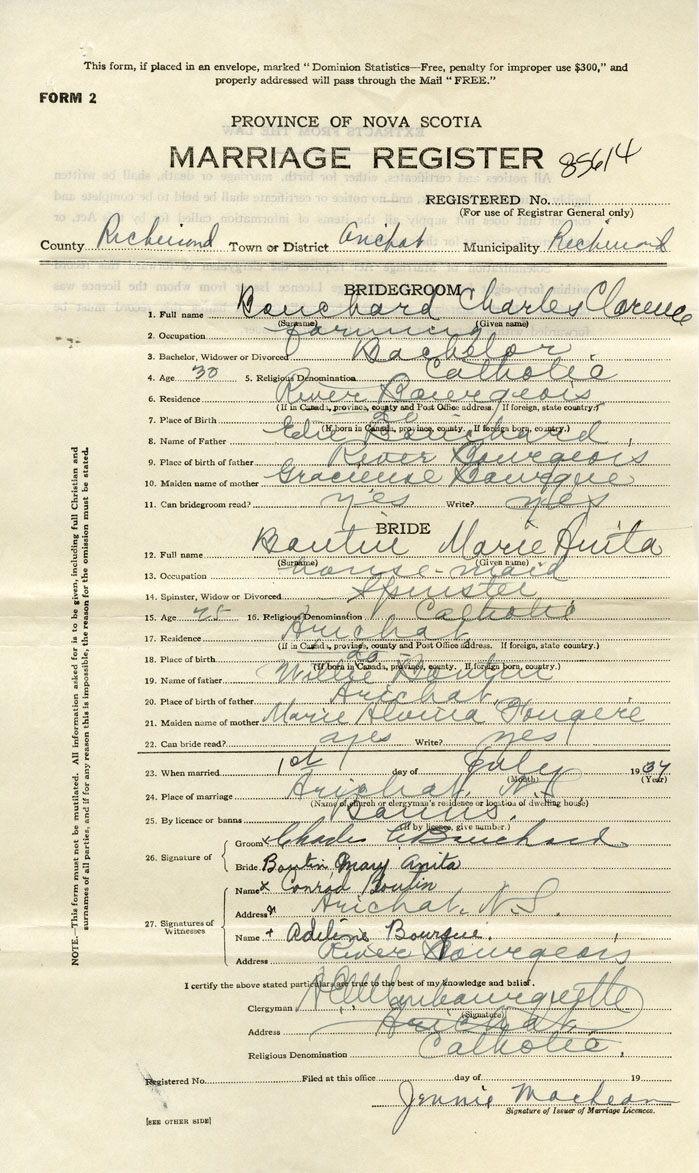 This form, if placed in an envelope, marked " Dominion Statistics—Free, penalty for improper use $300," and
properly addressed will pass through the Mail " FREE."
FORM 2
PROVINCE OF NOVA SCOTIA
MARRIAGE REGISTER 85614
REGISTERED No.
(For use of Registrar General only)
County Richmond Town or District Arichat Municipality Richmond
BRIDEGROOM
1. Full name Bouchard Charles Clarence
(Surname) (Given name)
2. Occupation farming
3. Bachelor, Widower or Divorced Bachelor
4. Age 30 5. Religious Denomination Catholic
6. Residence River Bourgeois
(If in Canada, province, county and Post Office address. If foreign, state country.)
7. Place of Birth do
(If born in Canada, province, county. If foreign born, country.)
8. Name of Father Edie Bouchard
9. Place of birth of father River Bourgeois
10. Maiden name of mother Gracieuse Bourque
11. Can bridegroom read? yes Write? yes
BRIDE
12. Full name Boutin Marie Anita
(Surname) (Given name)
13. Occupation house-maid
14. Spinster, Widow or Divorced Spinster
15. Age 25 16. Religious Denomination Catholic
17. Residence Arichat
(If in Canada, province, county and Post Office address. If foreign, state country.)
18. Place of birth do
(If born in Canada, province, county. If foreign, country.)
19. Name of father Willie Boutin
20. Place of birth of father Arichat
21. Maiden name of mother Marie Alvina Fougere
22. Can bride read? yes Write? yes
23. When married 1st day of July 1937
(Month) (Year)
24. Place of marriage Arichat, N.S.
(Name of church or clergyman's residence or location of dwelling house)
25. By licence or banns Banns.
(If by licence, give number.)
26. Signature of
Groom x Charles C Bouchard
Bride Boutin, Mary Anita
27. Signatures of Witnesses
Name x Conrad Boutin
Address Arichat, N.S.
Name + Adeline Bourque.
Address River Bourgeois
I certify the above stated particulars are true to the best of my knowledge and belief.
Clergyman
(Signature)
Address Arichat
Religious Denomination Catholic
Registered No. Filed at this office day of 19
Jennie MacLean
Signature of Issuer of Marriage Licences.
[SEE OTHER SIDE]
NOTE.—This form must not be mutilated. All information asked for is to be given, including full Christian and
surnames of all parties, and if for any reason this is impossible, the reason for the omission must be stated.